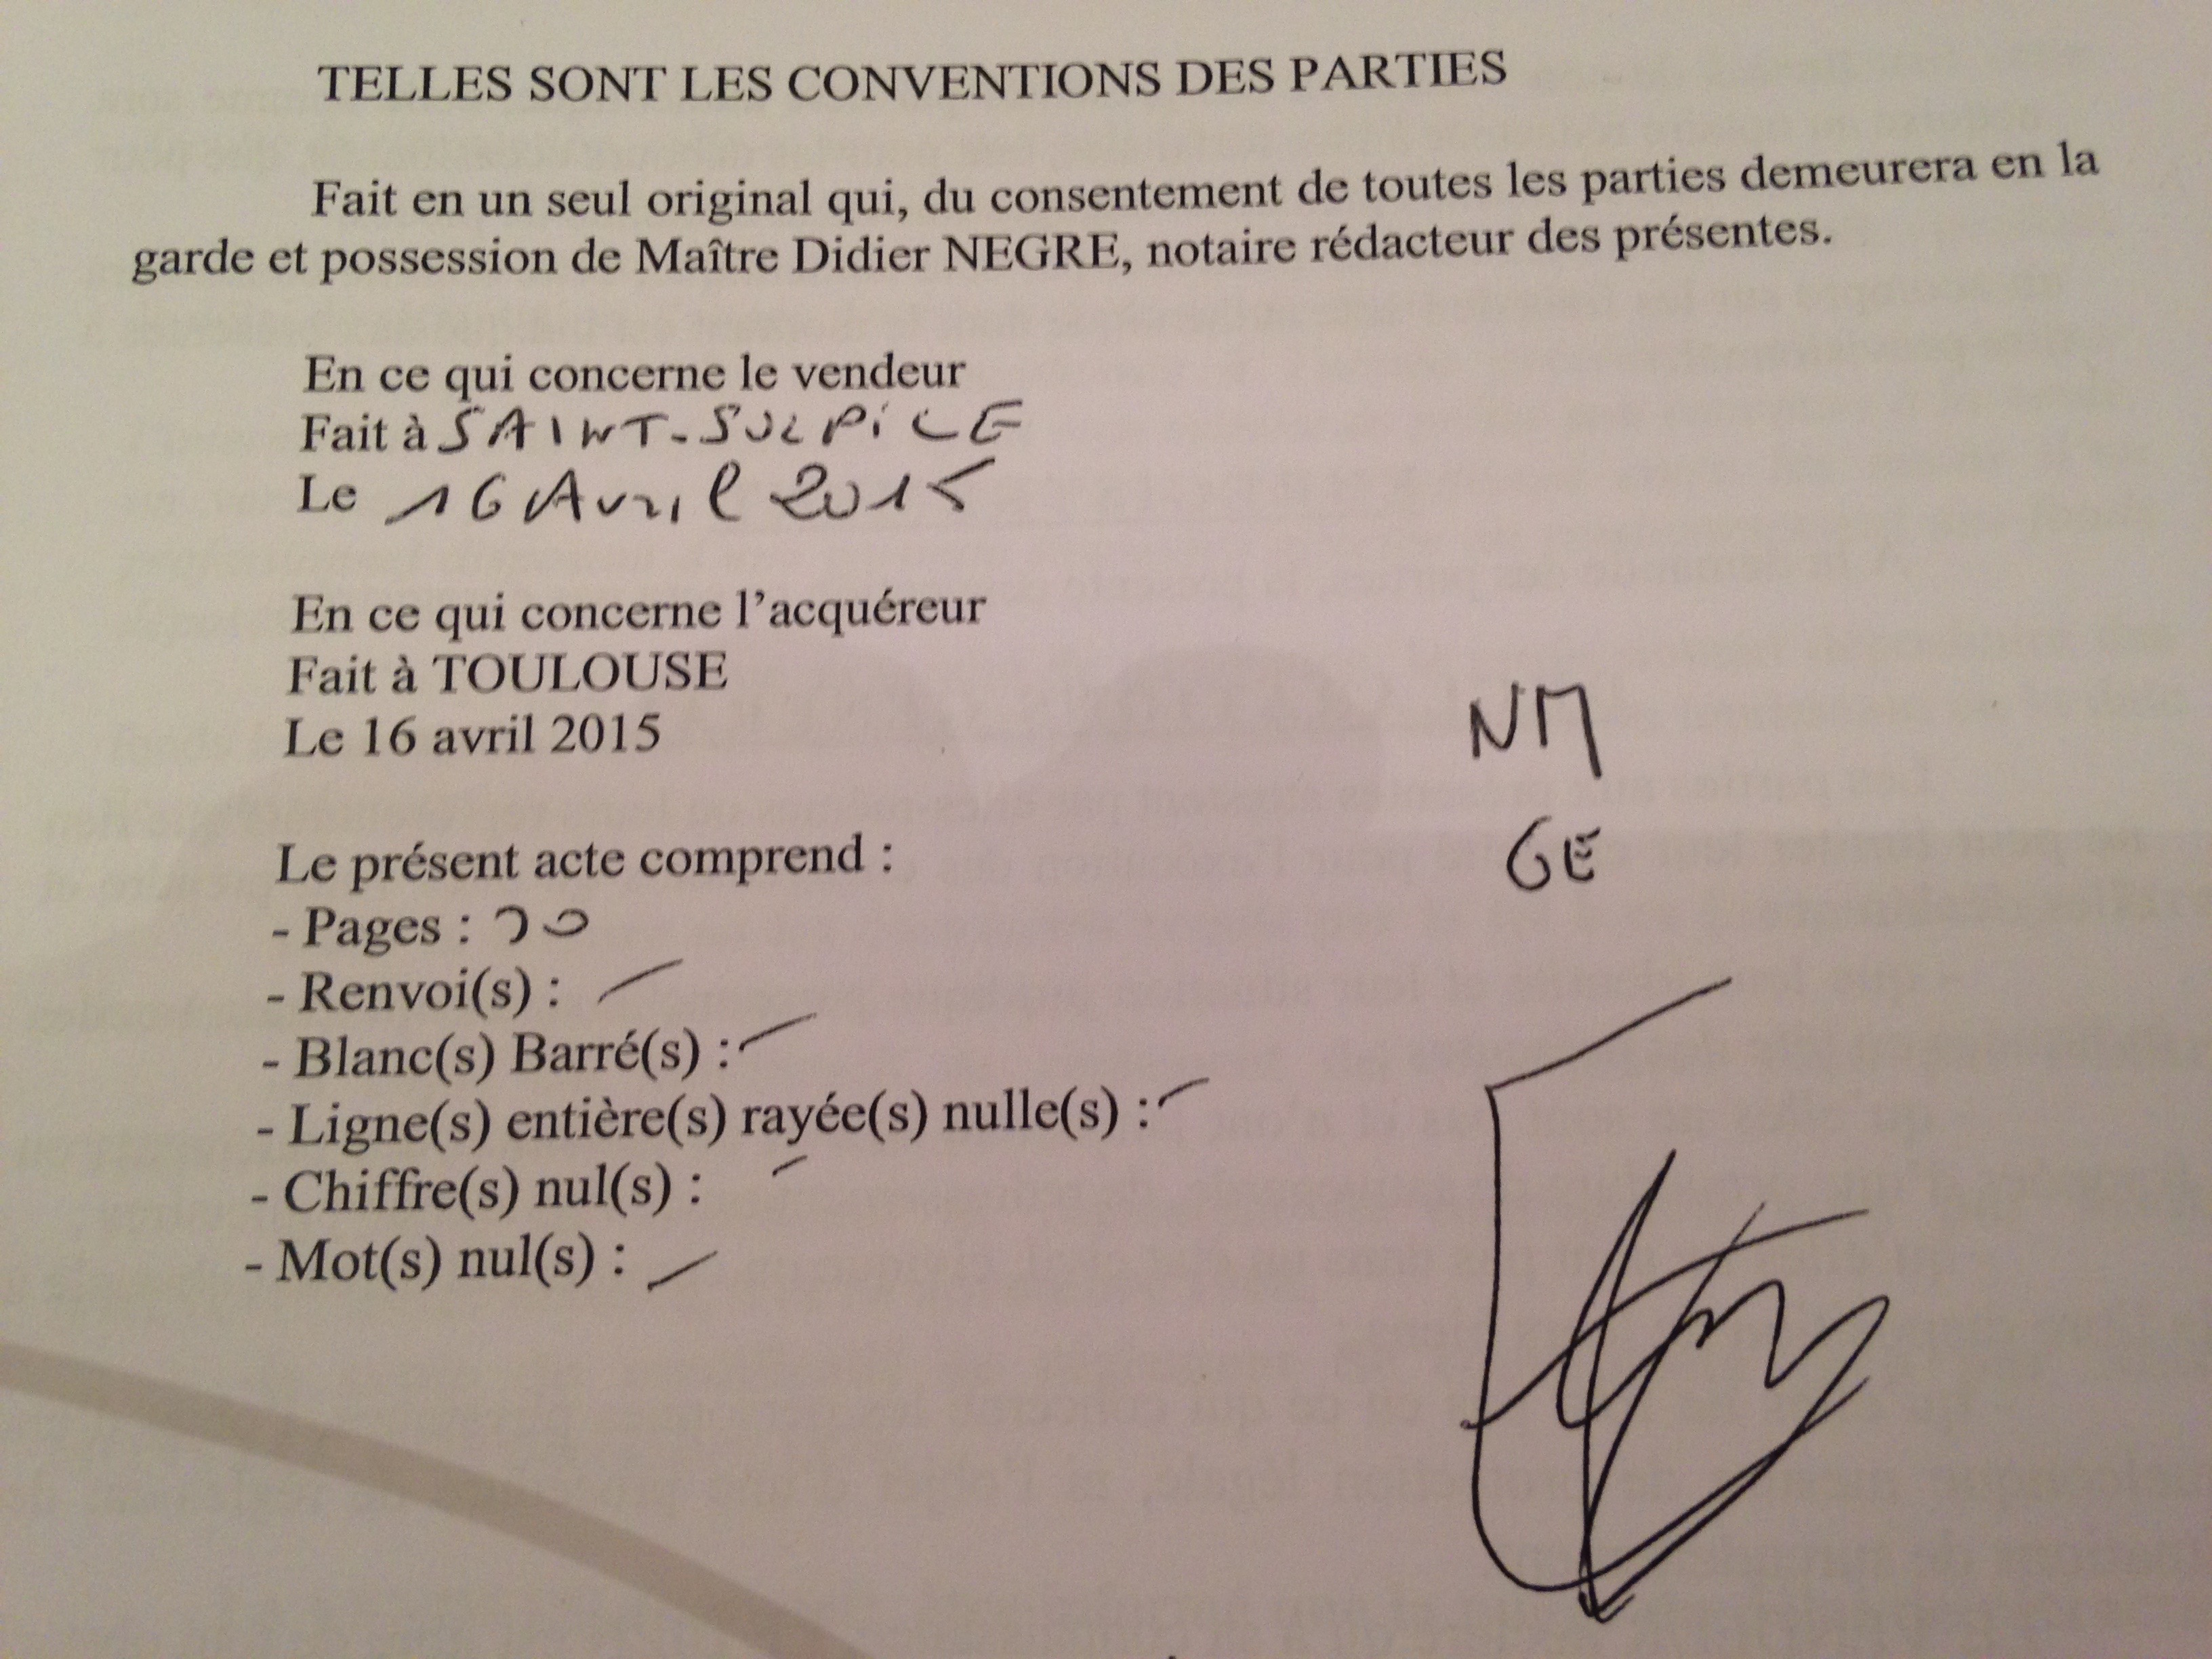 TELLES SONT LES CONVENTIONS DES PARTIES
Fait en un seul original qui, du consentement de toutes les parties demeurera en la
garde et possession de Maître Didier NEGRE, notaire rédacteur des présentes.
En ce qui concerne le vendeur
Fait à SAINT-SULPiCE
Le 16 Avril 2015
En ce qui concerne l'acquéreur
Fait à TOULOUSE
Le 16 avril 2015
NM
GE
Le présent acte comprend :
- Pages :
- Renvoi(s) : —
- Blanc(s) Barré(s) : —
- Ligne(s) entière(s) rayée(s) nulle(s) : —
- Chiffre(s) nul(s) : —
- Mot(s) nul(s) : —